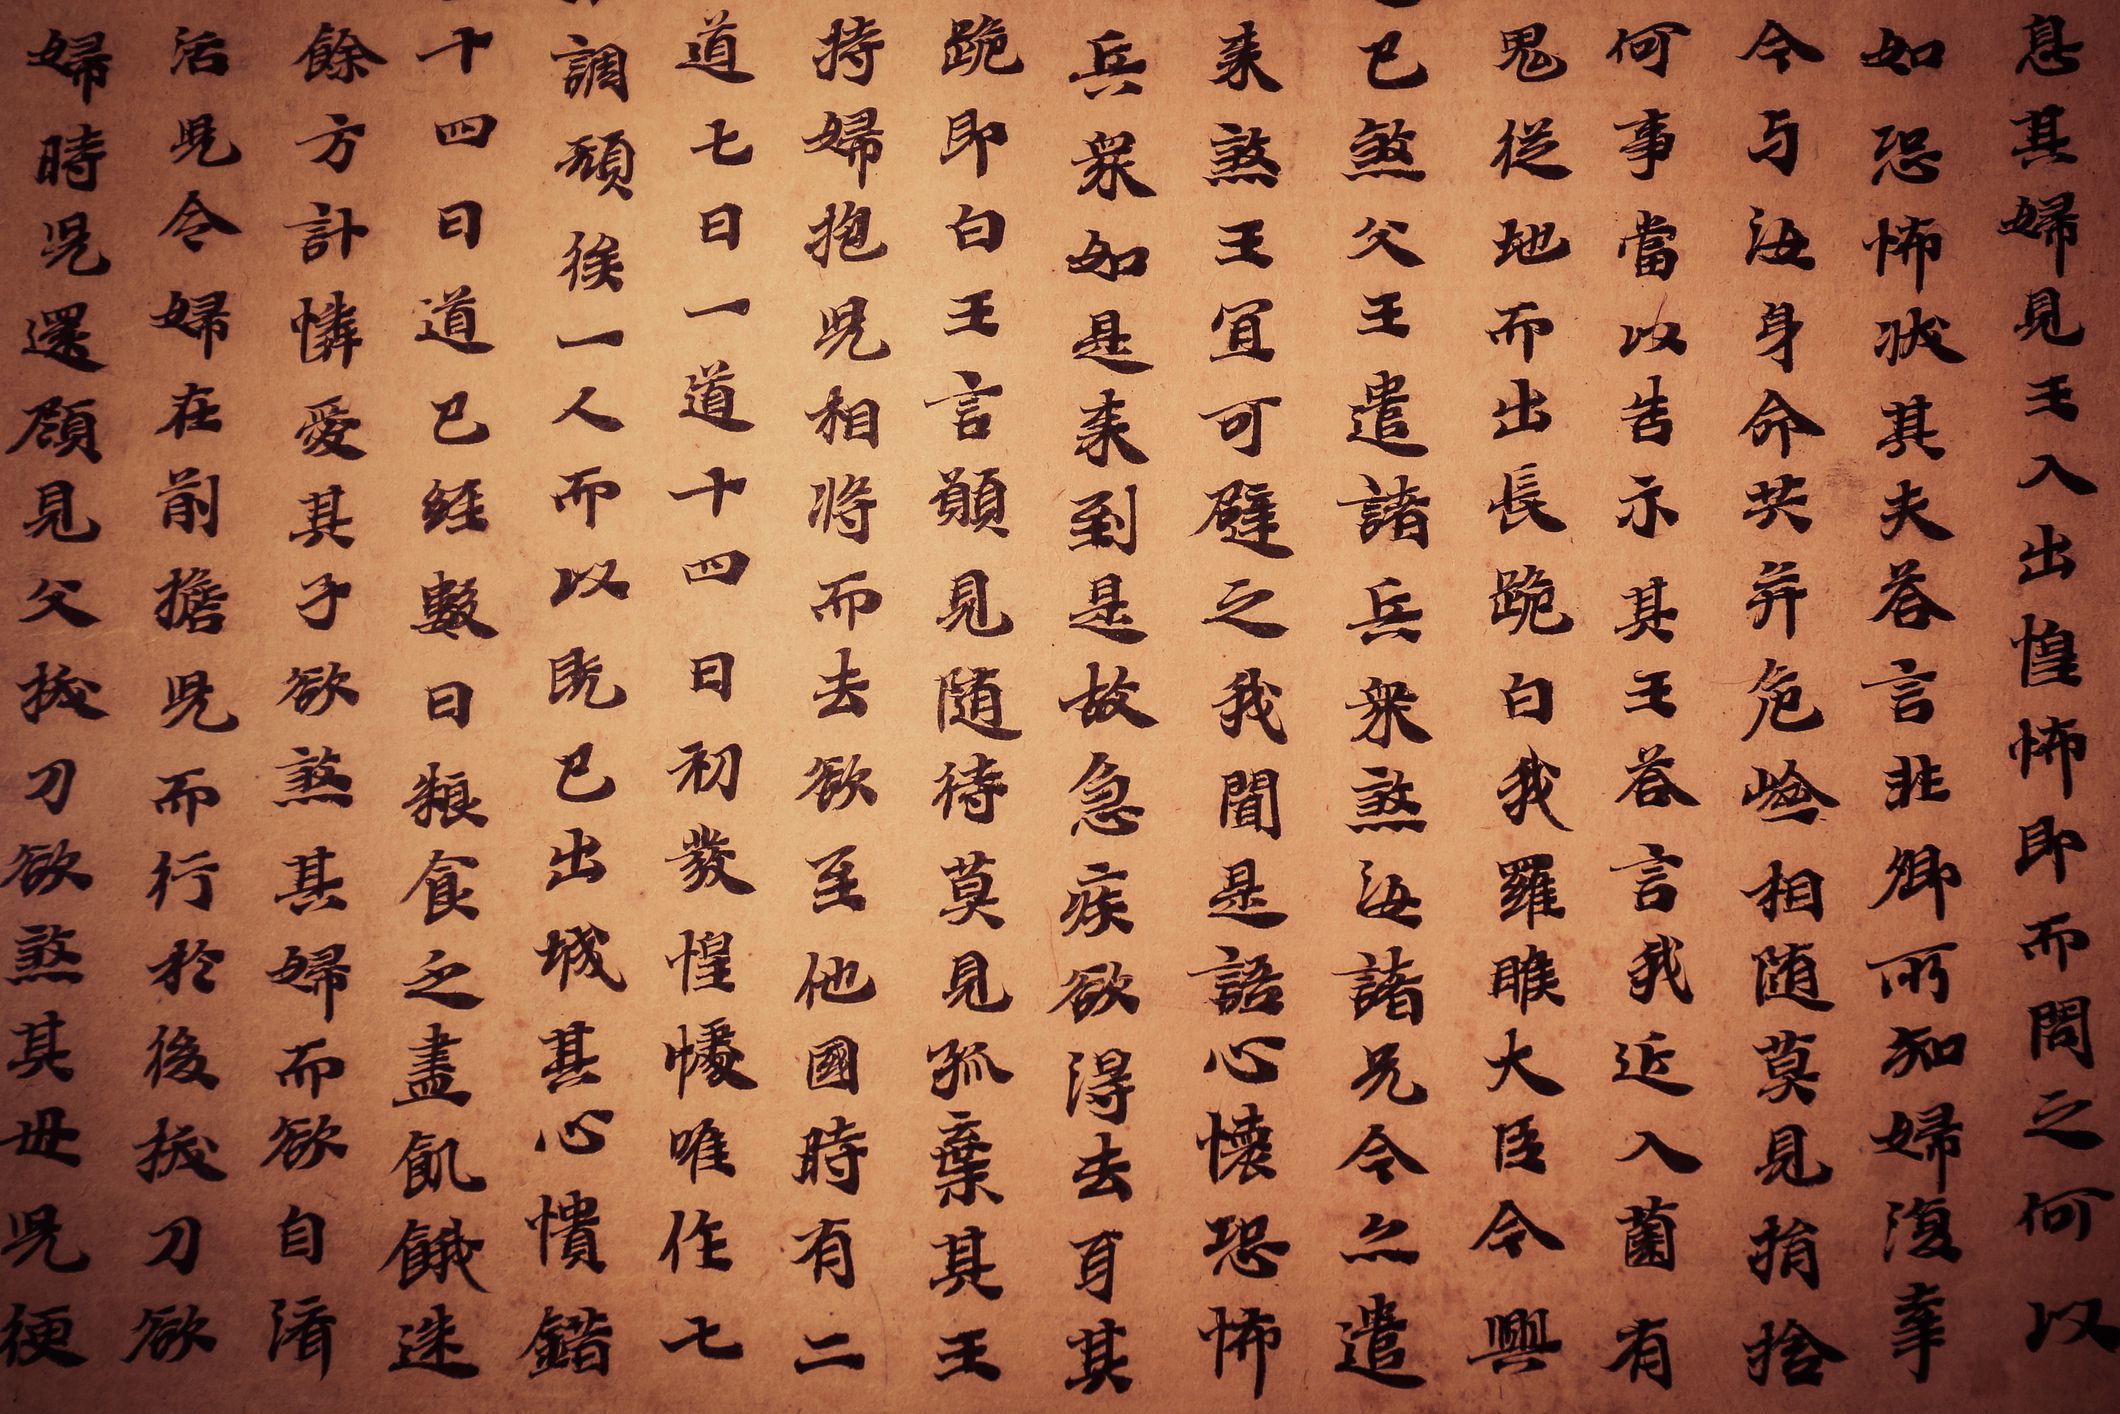 息其婦見王入出惶怖即而問之何以
如恐怖状其夫荅言非卿所知婦復牽
今与汝身命共并危嶮相随莫見捐捨
何事當以告示其王荅言我近入薗有
鬼從地而出長跪白我羅睺大臣今興
已煞父王遣諸兵衆煞汝諸兄今亦遣
来煞王宜可避之我聞是語心懷恐怖
兵衆如是来到是故急疾欲得去耳其
跪即白王言願見随待莫見孤棄其王
持婦抱児相将而去欲至他國時有二
道七日一道十四日初發惶懅唯作七
調頓後一人而以既已出城其心憒錯
十四日道已經數日粮食之盡飢餓迷
餘方計憐愛其子欲煞其婦而欲自濟
活児令婦在前擔児而行於後拔刀欲
婦時児還顧見父拔刀欲煞其母児便